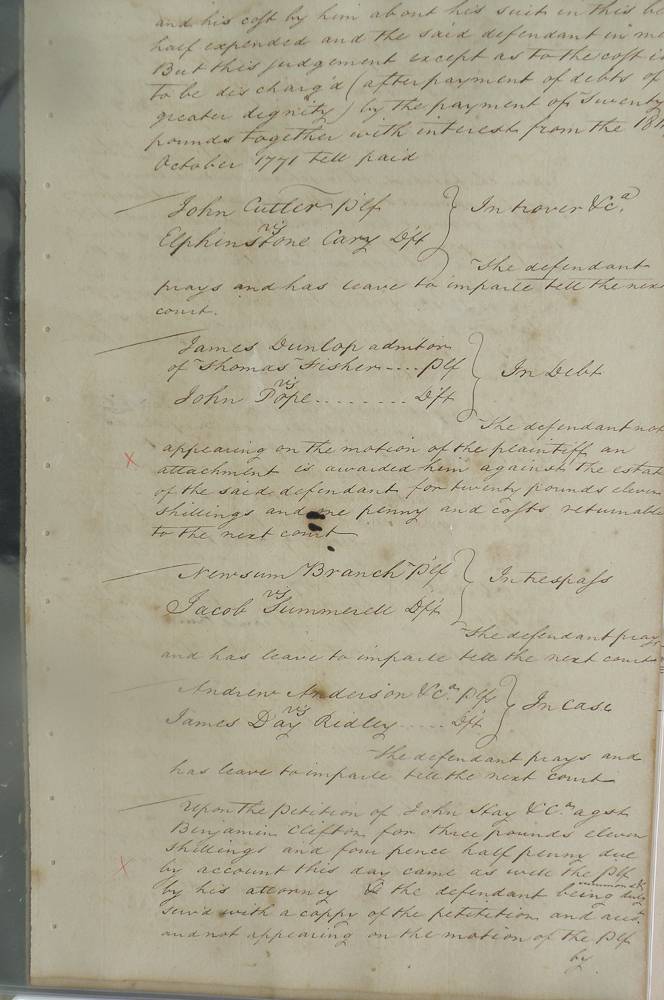 and his cost by him about his suit in this be
half expended and the said defendant in me
But this judgement except as to the cost is
to be discharg'd (after payment of debts of
greater dignity) by the payment of Twenty
pounds together with interest from the 18th
October 1771 tell paid
John Cutler Plf
vs
Elphinstone Cary Dft
In trover &ca.
The defendant
prays and has leave to imparle tell the next
court.
James Dunlop admtor
of Thomas Fisher .... Plf
vs
John Pope ........ Dft
In Debt
The defendant not
appearing on the motion of the plaintiff an
attachment is awarded him against the estate
of the said defendant for twenty pounds eleven
shillings and one penny and costs returnable
to the next court
Newsum Branch Plf
vs
Jacob Summerell Dft
In trespass
The defendant prays
and has leave to imparle tell the next court
Andrew Anderson &Ca. Plfs
vs
James Day Ridley ..... Dft
In Case
The defendant prays and
has leave to imparle tell the next court
Upon the petition of John Hay &Co. agst
Benjamin Clifton for three pounds eleven
shillings and four pence half penny due
by account this day came as well the Plf
by his attorney & the defendant being summons'd & duly
serv'd with a coppy of the petitition and acct.
and not appearing on the motion of the Plf
by